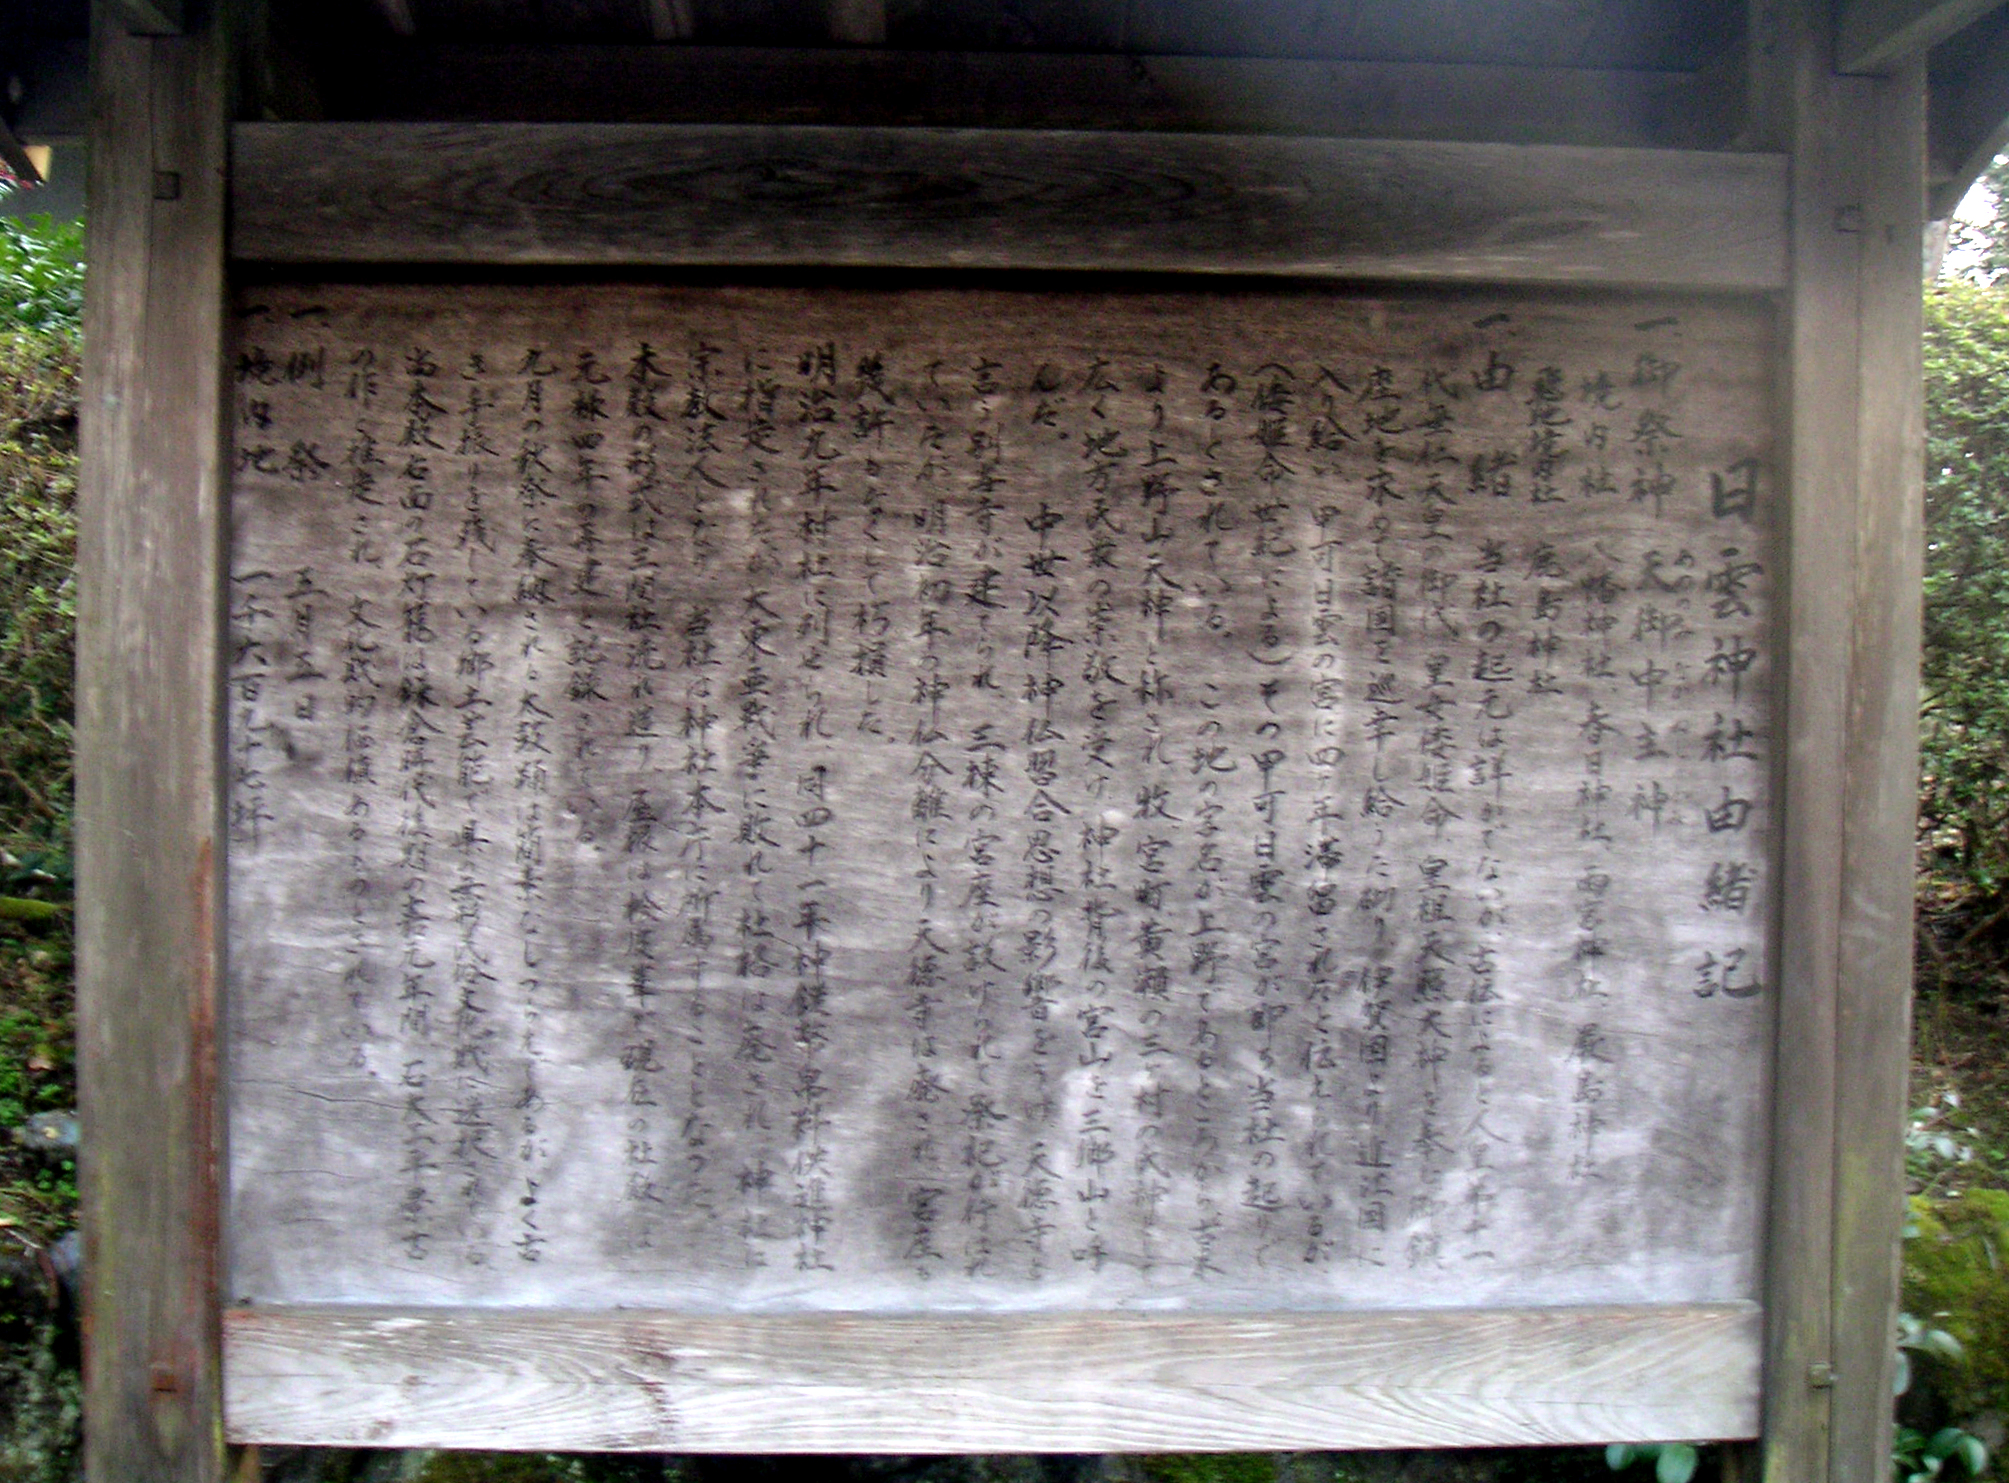 日雲神社由緒記
一、御祭神 天御中主神
あめのみなかぬし
境内社 八幡神社、春日神社、雨宮神社、厳島神社
飛地境内社 鹿島神社
一、由緒 当社の起元は詳かでないが、古伝によると人皇第十一
代垂仁天皇の御代、皇女倭姫命、皇祖天照大神を奉じ御鎮
座地を求めて諸国を巡幸し給うた砌り、伊賀国より近江国に
入り給い、甲可日雲の宮に四ヶ年滞留されたと伝えられているが、
(倭姫命世記による)その甲可日雲の宮が即ち当社の起りで
あるとされている。この地の字名が上野であるところから、古来
より上野山天神と称され、牧、宮町、黄瀬の三ヶ村の氏神として
広く地方民衆の崇敬を受け、神社背後の宮山を三郷山と呼
んだ。
中世以降神仏習合思想の影響をうけ、天徳寺と
言う別当寺が建てられ、三棟の宮座が設けられて祭祀が行はれ
ていたが、明治初年の神仏分離により天徳寺は廃され、宮座も
幾許もなくして朽損した。
明治九年村社に列せられ、同四十一年神饌幣帛料供進神社
に指定されたが、大東亜戦争に敗れて社格は廃され、神社は
宗教法人となり、当社は神社本庁に所属することとなった。
本殿の形式は三間社流れ造り、屋根は桧皮葺で現在の社殿は
元禄四年の再建と記録されている。
九月の秋祭に奉納される太鼓踊は簡素なしつらえであるがよく古
き手振りを残している郷土芸能で県の無形民俗文化財に選択されている
当本殿右面の石灯籠は鎌倉時代後期の嘉元年間、石大工平景吉
の作と推定され、文化財的価値あるものとされている。
一、例 祭 五月五日
一、境内地 一千六百九十七坪